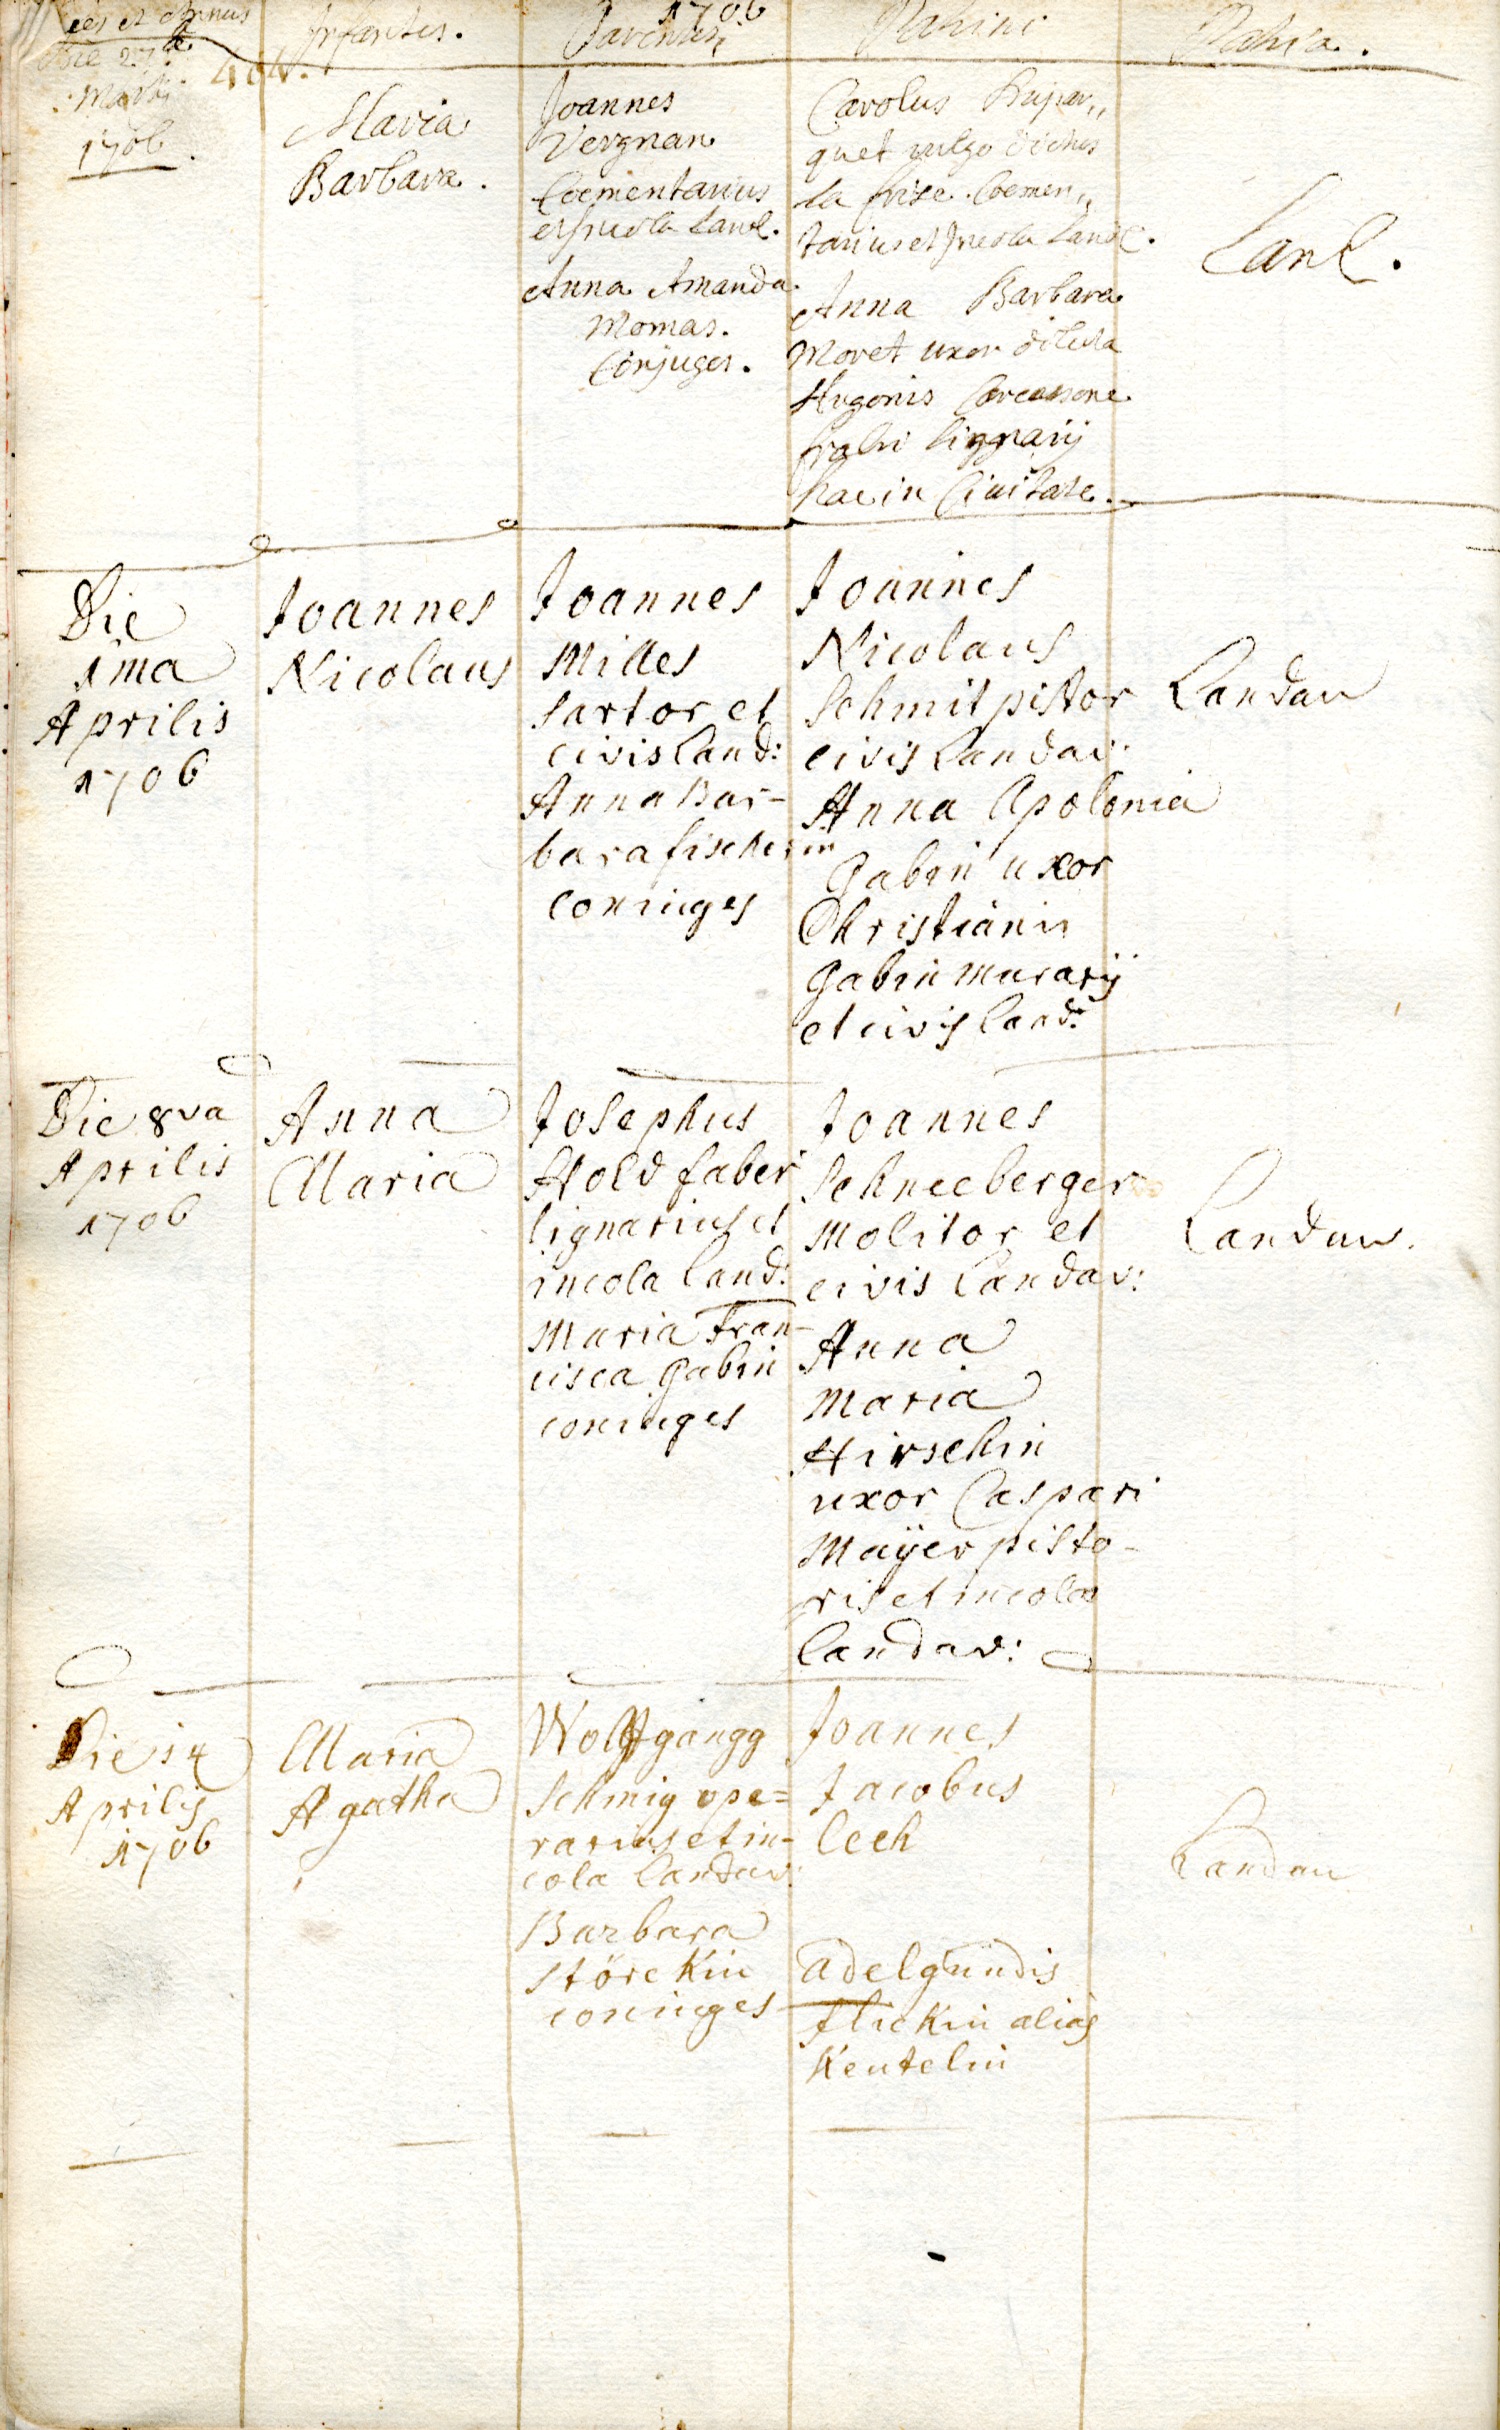 1706
Dies et Annus
Infantes.
Parentes
Patrini
Patria.
Die 27.
Martii
1706.
Maria
Barbara.
Joannes
Vergnan
Coementarius
et Incola Land.
Anna Amanda
Momas.
Conjuges.
Carolus
quet vulgo dictus
la frise. Coemen,,
tarius et Incola Land.
Anna Barbara
Moret uxor
Hugonis Carcassone
fabri lignarij
hac in Civitate.
Land.
Die
1ma
Aprilis
1706
Joannes
Nicolaus
Joannes
Milles
sartor et
civis Land:
Anna Bar-
bara fischerin
coniuges
Joannes
Nicolaus
Schmit pistor
civis Landav:
Anna Apolonia
Gabin uxor
Christiani
Gabin murarij
et civis Land:
Landau
Die 8va
Aprilis
1706
Anna
Maria
Josephus
Hold faber
lignarius et
incola Land:
Maria Fran-
cisca Gabin
coniuges
Joannes
Schneeberger
molitor et
civis Landav:
Anna
Maria
Hirschin
uxor Caspari
Maÿer pisto-
ris et incolae
Landav:
Landau.
Die 14
Aprilis
1706
Maria
Agatha
Wolffgangg
Schmig ope=
rarius et in-
cola Landav:
Barbara
Störckin
coniuges
Joannes
Jacobus
Lech
Adelgundis
flickin alias
Keutelin
Landau